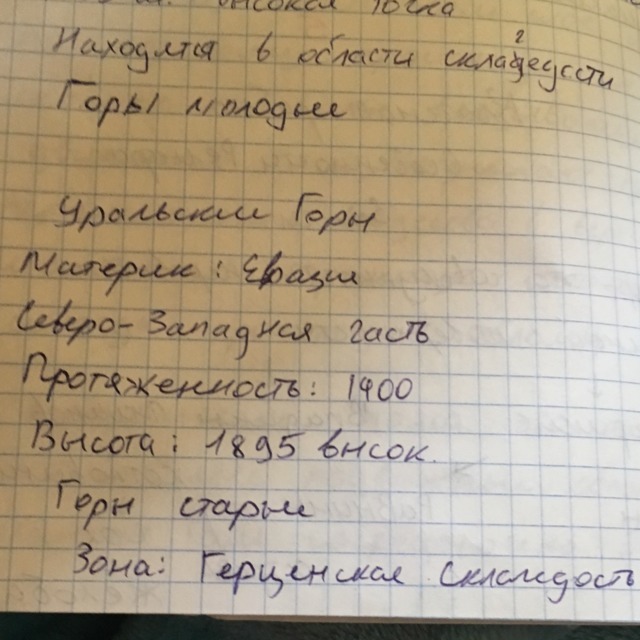 высокая точка
Находятся в области складеусти
Горы молодые
Уральский Горы
Материк: Евразия
Северо-Западная часть
Протяженность: 1400
Высота: 1895 высок.
Горы старые
Зона: Герценская Складость